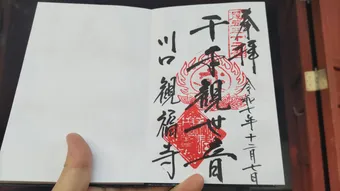 奉拝
令和七年十二月七日
千手観世音
川口観福寺